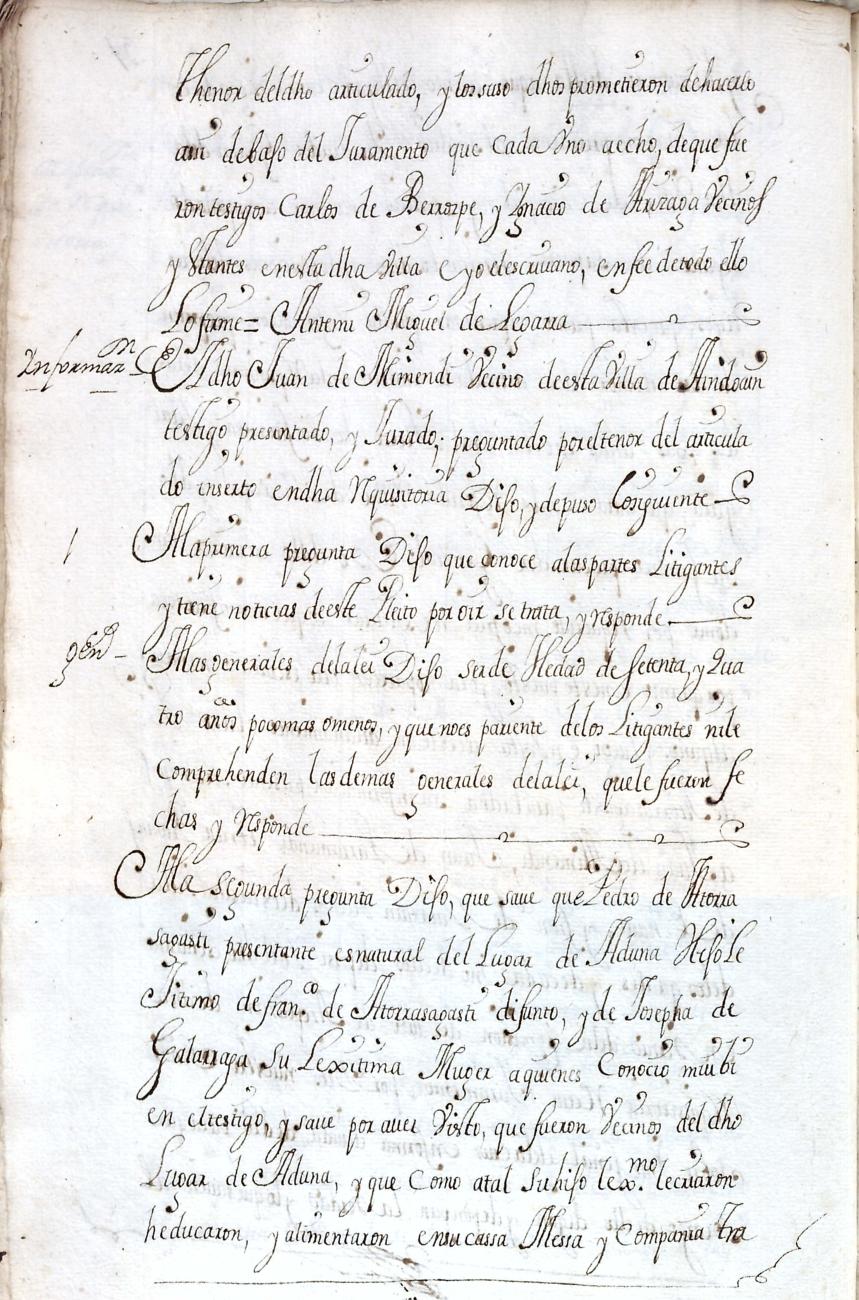 thenor del dho articulado, y los suso dhos prometieron de hacerlo
asi debaso del Juramento que cada Vno a echo, de que fue
ron testigos Carlos de Berrozpe, y Ygnacio de Aruzaga Vecinos
y stantes en esta dha Villa e yo el escriuano, en fee de todo ello
Lo firme = Antemi Miguel de Legarra
Informazn Al dho Juan de Mimendi Vecino de esta Villa de Aindoain
testigo presentado, y Jurado, preguntado por el tenor del articula
do inserto en dha Rquisitoria Diso, y depuso lo siguiente
1 A la primera pregunta Diso que conoce a las partes Litigantes
y tiene noticias de este Pleito por oir se trata, y responde
A las generales de la lei Diso ser de Hedad de setenta, y qua
tro años poco mas o menos, y que no es pariente de los Litigantes ni le
Comprehenden las demas generales de la lei, que le fueron fe
chas y responde
A la segunda pregunta Diso, que saue que Pedro de Atorra
sagasti presentante es natural del Lugar de Aduna Hiso Le
Jitimo de franco de Atorrasagasti difunto, y de Josepha de
Galarraga su Lexitima Muger a quienes Conocio mui bi
en el testigo, y saue por auer Visto, que fueron Vecinos del dho
Lugar de Aduna, y que Como a tal su hiso lexmo le criaron
heducaron, y alimentaron en su cassa Messa y Compania tra